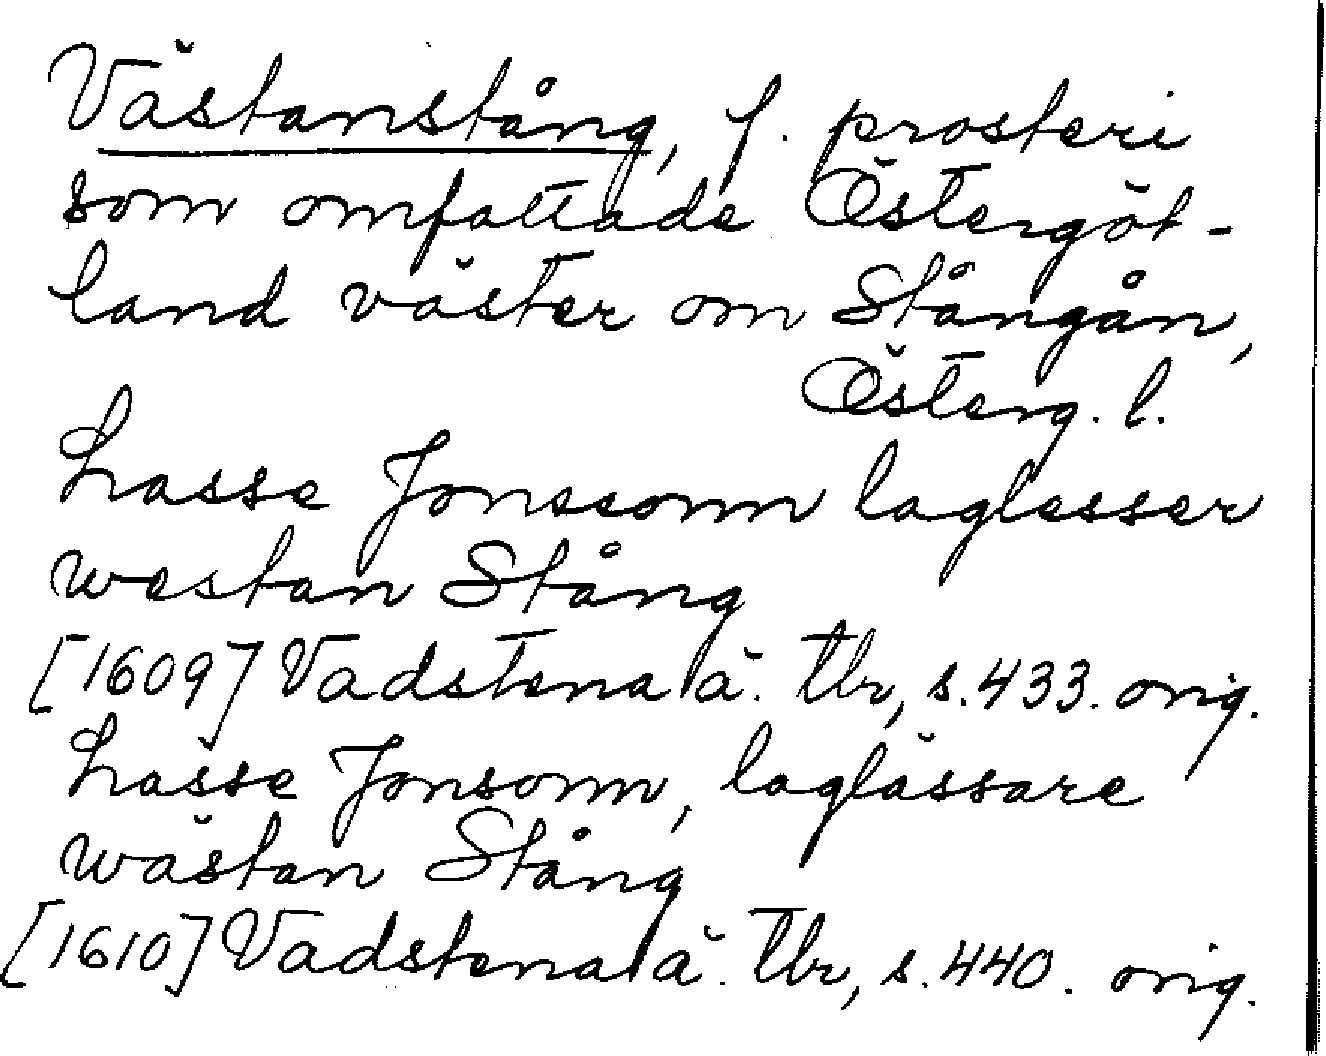 Västanstång, f. prosteri
som omfattade Östergöt-
land väster om Stångån,
Österg. l.
Lasse Jonssonn laglesser
westan Stång
[1609] Vadstena ä. tbr, s. 433. orig.
Lasse Jonsonn, laglässare
wästan Stång
[1610] Vadstena ä. tbr, s. 440. orig.